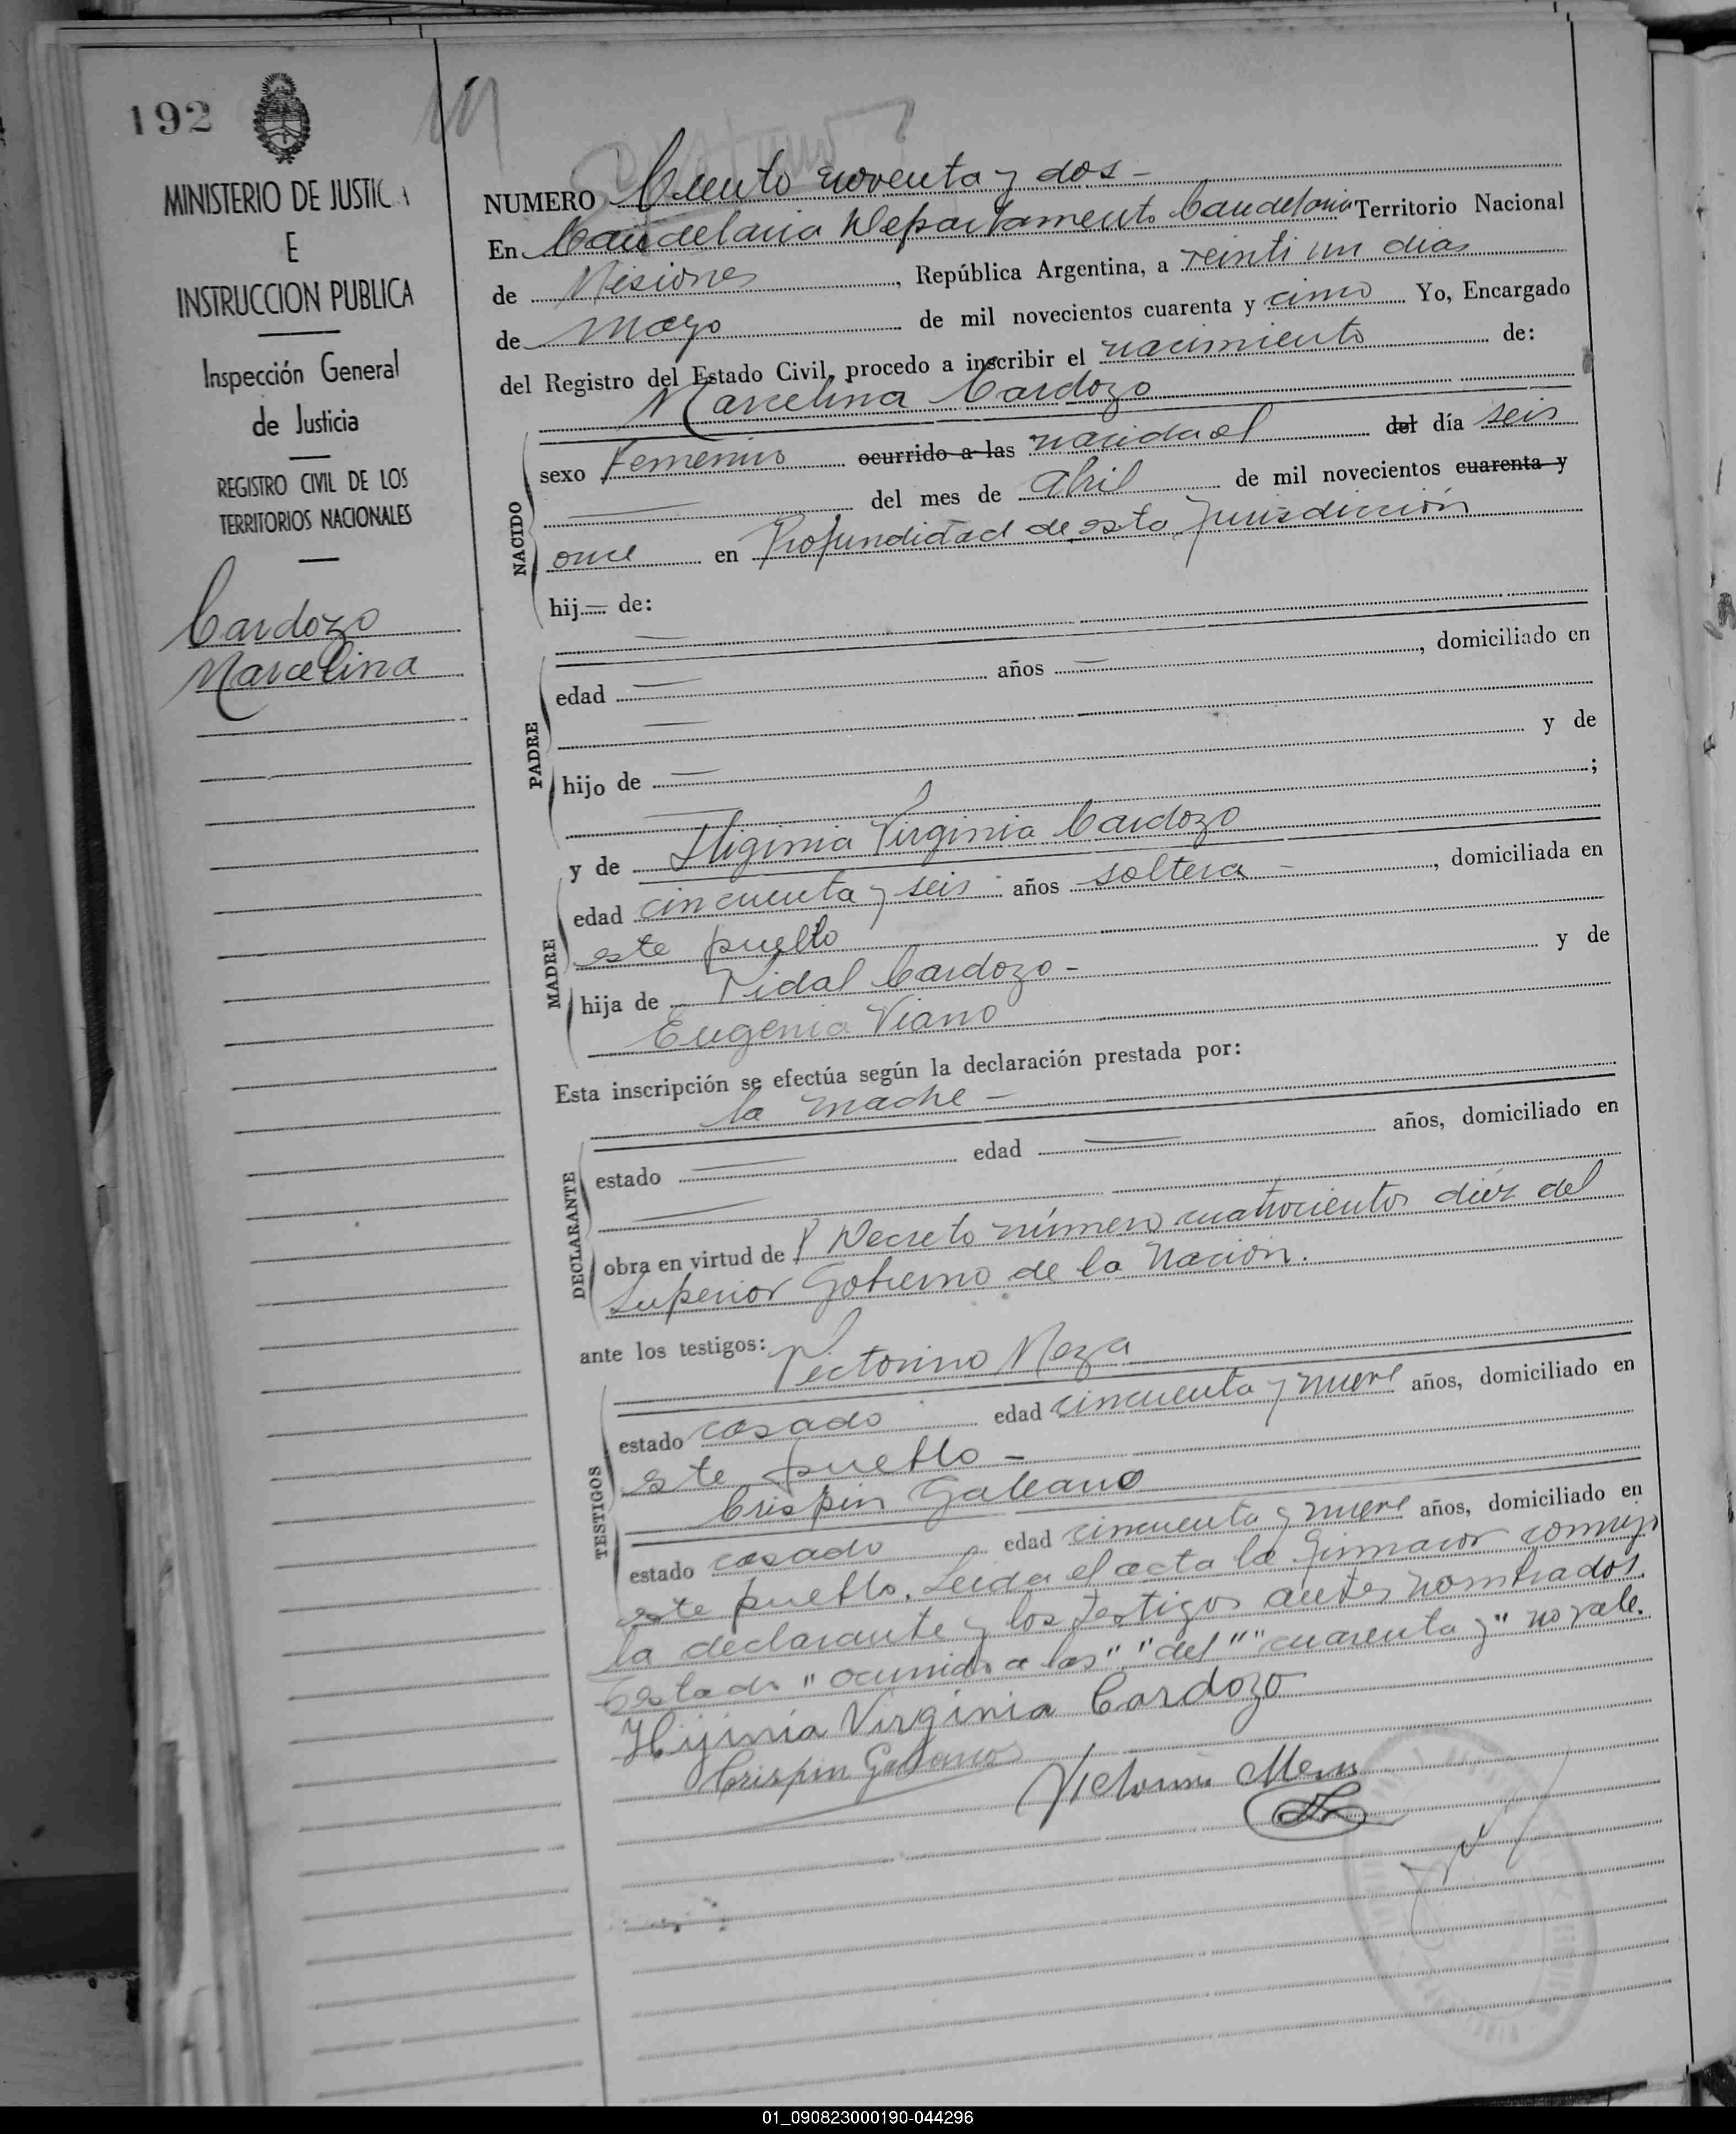 192
MINISTERIO DE JUSTICIA
E
INSTRUCCION PUBLICA
Inspección General
de Justicia
REGISTRO CIVIL DE LOS
TERRITORIOS NACIONALES
Cardozo
Marcelina
NUMERO Ciento noventa y dos -
En Candelaria Departamento Candelaria Territorio Nacional
de Misiones, República Argentina, a veinti un dias
de Mayo de mil novecientos cuarenta y cinco Yo, Encargado
del Registro del Estado Civil, procedo a inscribir el nacimiento de:
Marcelina Cardozo
NACIDO
sexo Femenino ocurrido a las nacida el del día seis
del mes de Abril de mil novecientos cuarenta y
once en Profundidad de esta jurisdicción
hij de:
PADRE
edad años , domiciliado en
hijo de y de
;
y de Higinia Virginia Cardozo
MADRE
edad cincuenta y seis años soltera - , domiciliada en
este pueblo
hija de Vidal Cardozo - y de
Eugenia Viano
Esta inscripción se efectúa según la declaración prestada por:
la madre -
DECLARANTE
estado edad años, domiciliado en
obra en virtud de Decreto número cuatrocientos diez del
Superior Gobierno de la Nación.
ante los testigos: Victorino Meza
TESTIGOS
estado casado edad cincuenta y nueve años, domiciliado en
este pueblo -
Crispin Galeano
estado casado edad cincuenta y nueve años, domiciliado en
este pueblo. Leida el acta la firmaron conmigo
la declarante y los testigos antes nombrados.
Testado "ocurrido a las" "del" "cuarenta y" no vale.
Hijinia Virginia Cardozo
Crispin Galeano
Victorino Meza
01_090823000190-044296